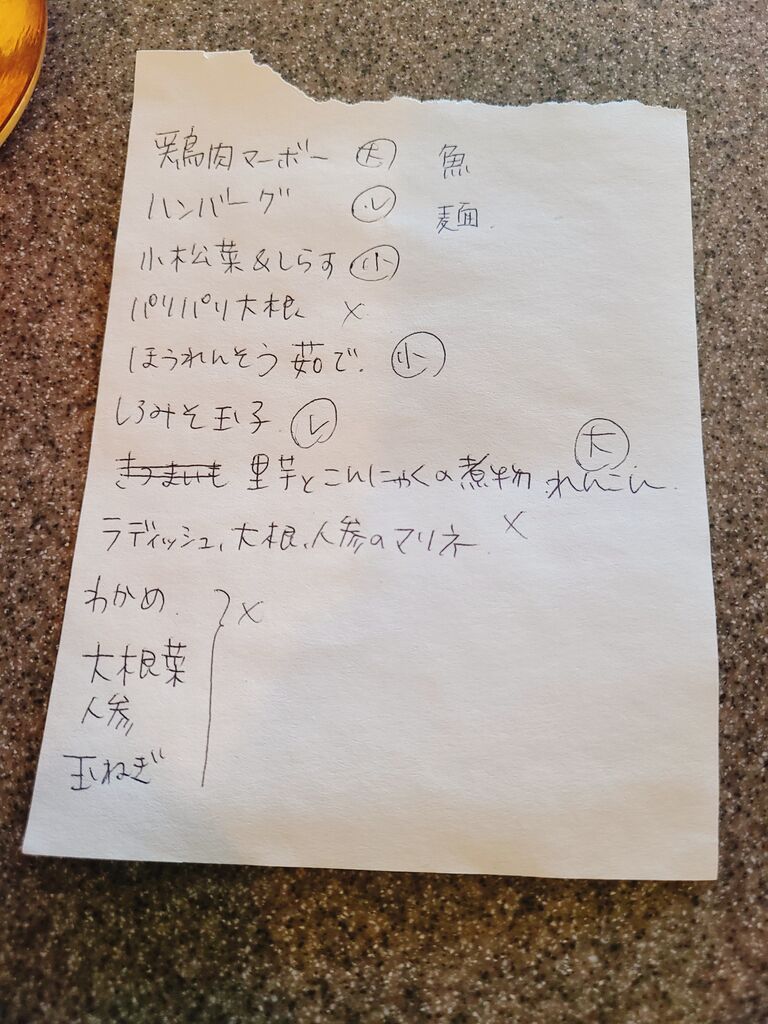 鶏肉マーボー 大 魚
ハンバーグ レ 麺
小松菜&しらす 小
パリパリ大根 ×
ほうれんそう 茹で 小
しろみそ玉子 レ
さつまいも 里芋とこんにゃくの煮物 れんこん 大
ラディッシュ、大根、人参のマリネ ×
わかめ ×
大根葉
人参
玉ねぎ